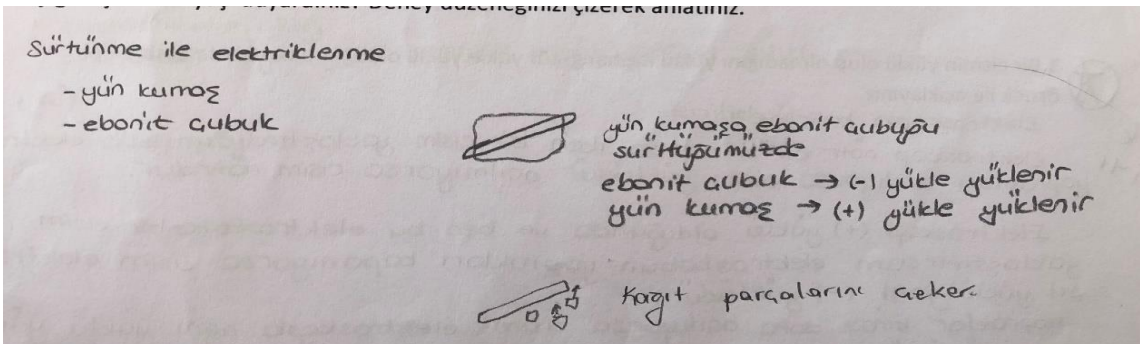 düzeneğinizi çizerek anlatınız.
Sürtünme ile elektriklenme
- yün kumaş
- ebonit çubuk
yün kumaşa ebonit çubuğu
sürttüğümüzde
ebonit çubuk → (-) yükle yüklenir
yün kumaş → (+) yükle yüklenir
Kağıt parçalarını çeker.